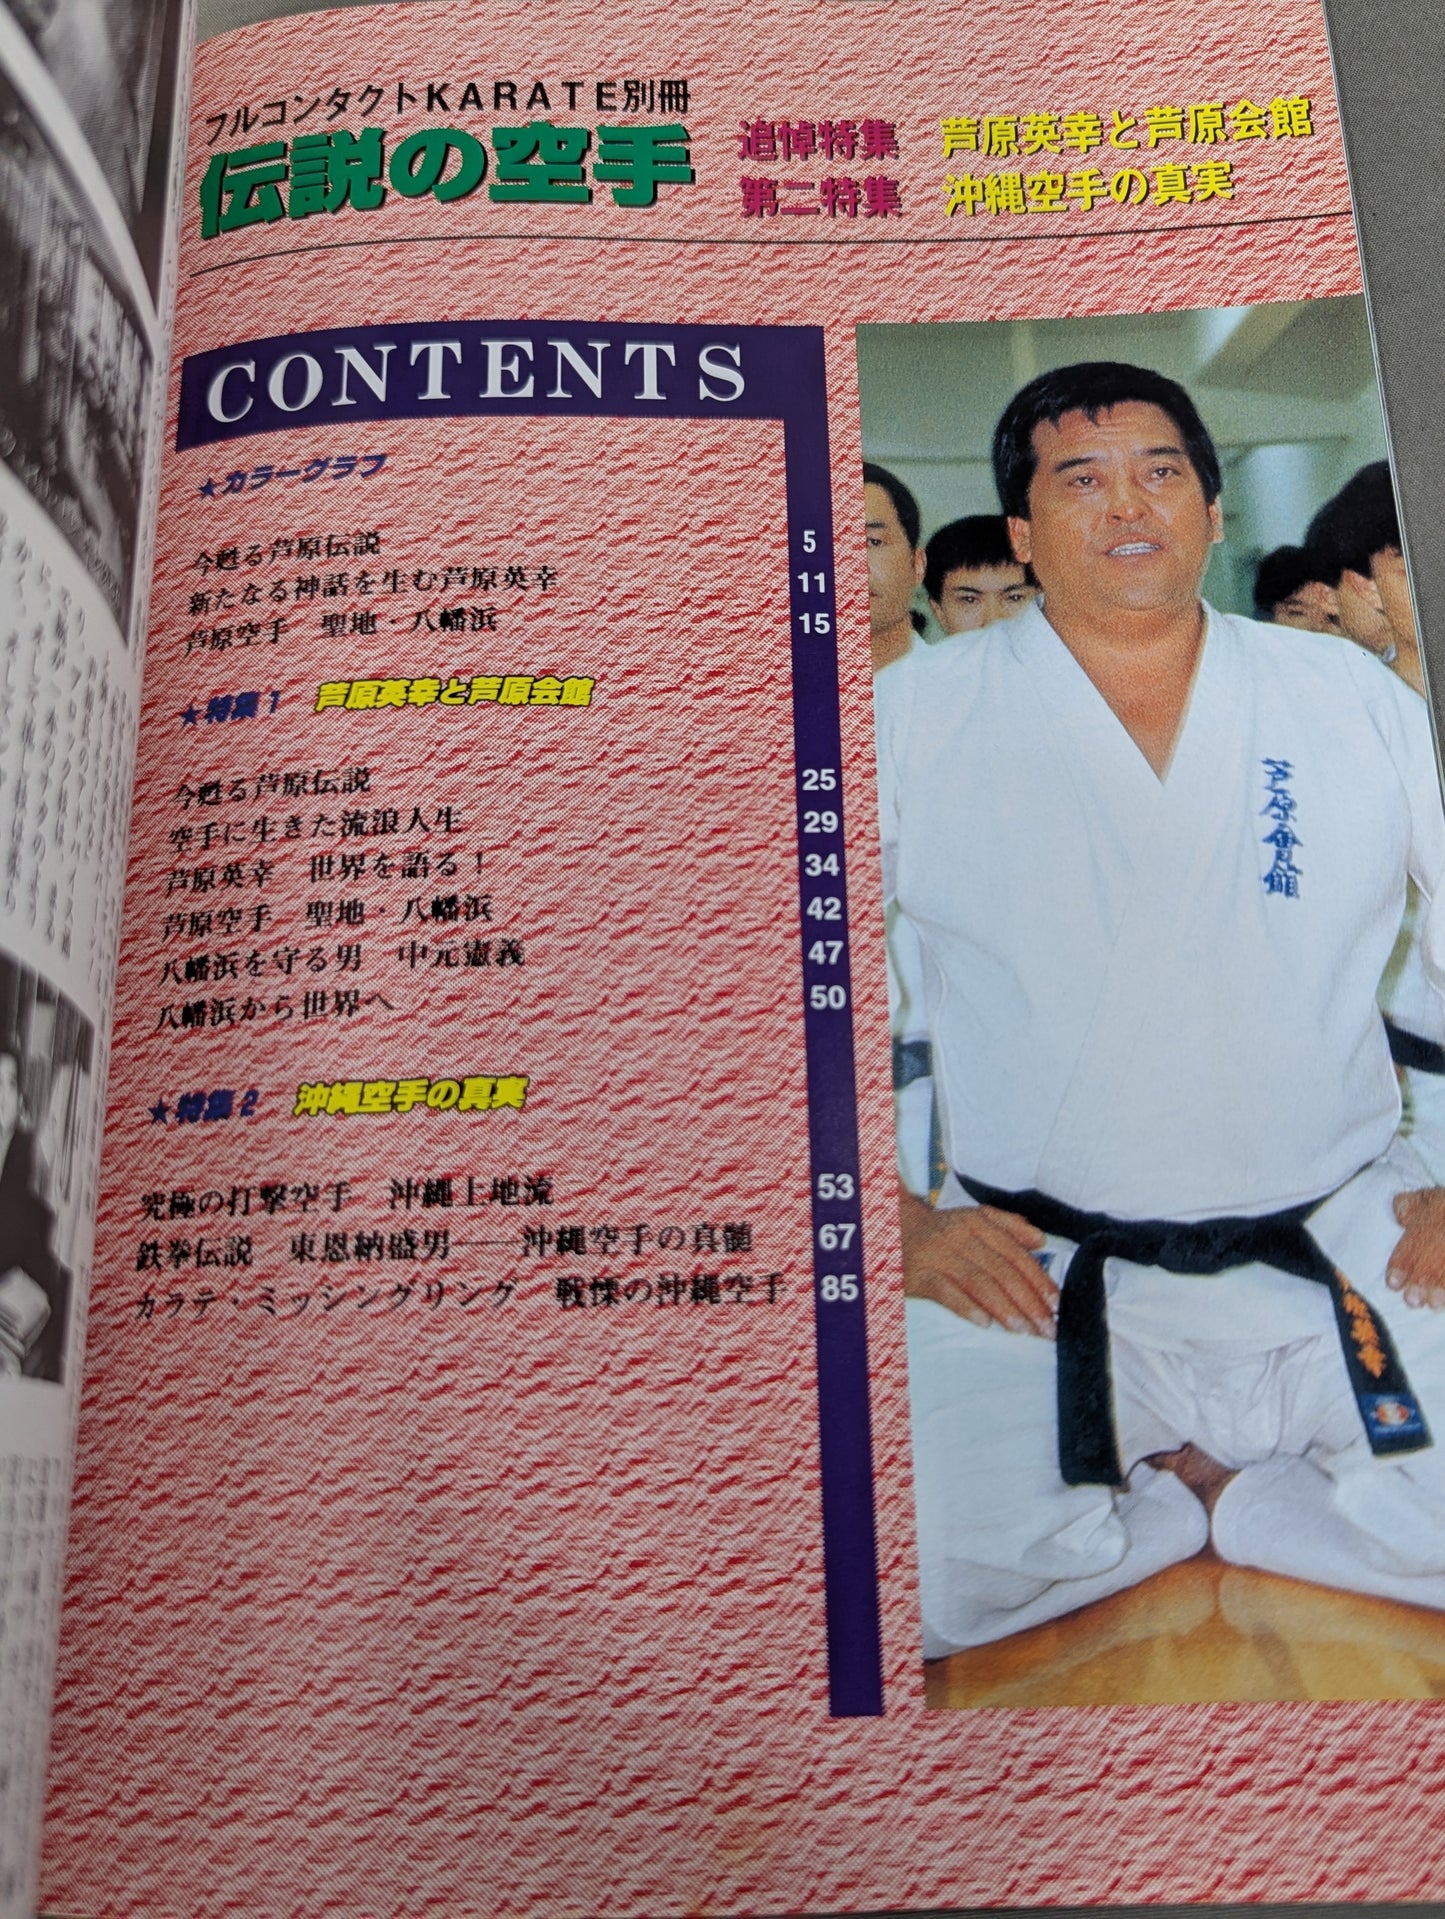 フルコンタクトKARATE別冊
伝説の空手
追悼特集 芦原英幸と芦原会館
第二特集 沖縄空手の真実
CONTENTS
★カラーグラフ
今甦る芦原伝説 5
新たなる神話を生む芦原英幸 11
芦原空手 聖地・八幡浜 15
★特集1 芦原英幸と芦原会館
今甦る芦原伝説 25
空手に生きた流浪人生 29
芦原英幸 世界を語る！ 34
芦原空手 聖地・八幡浜 42
八幡浜を守る男 中元憲義 47
八幡浜から世界へ 50
★特集2 沖縄空手の真実
究極の打撃空手 沖縄上地流 53
鉄拳伝説 東恩納盛男――沖縄空手の真髄 67
カラテ・ミッシングリング 戦慄の沖縄空手 85
芦原會館